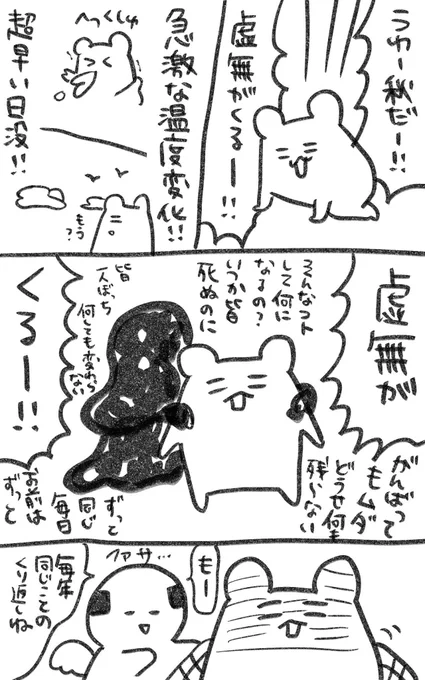 うわー秋だー!!
虚無がくるー!!
へっくしゅ
急激な温度変化!!
超早い日没!!
もう?
虚無が
くるー!!
そんなコト
して何に
なるの?
いつか皆
死ぬのに
皆
一人ぼっち
何しても変わら
ない
がんばって
もムダ
どうせ何も
残らない
ずっと
同じ
毎日
お前は
ずっと
もー
ファサ…
毎年
同じことの
くり返しね